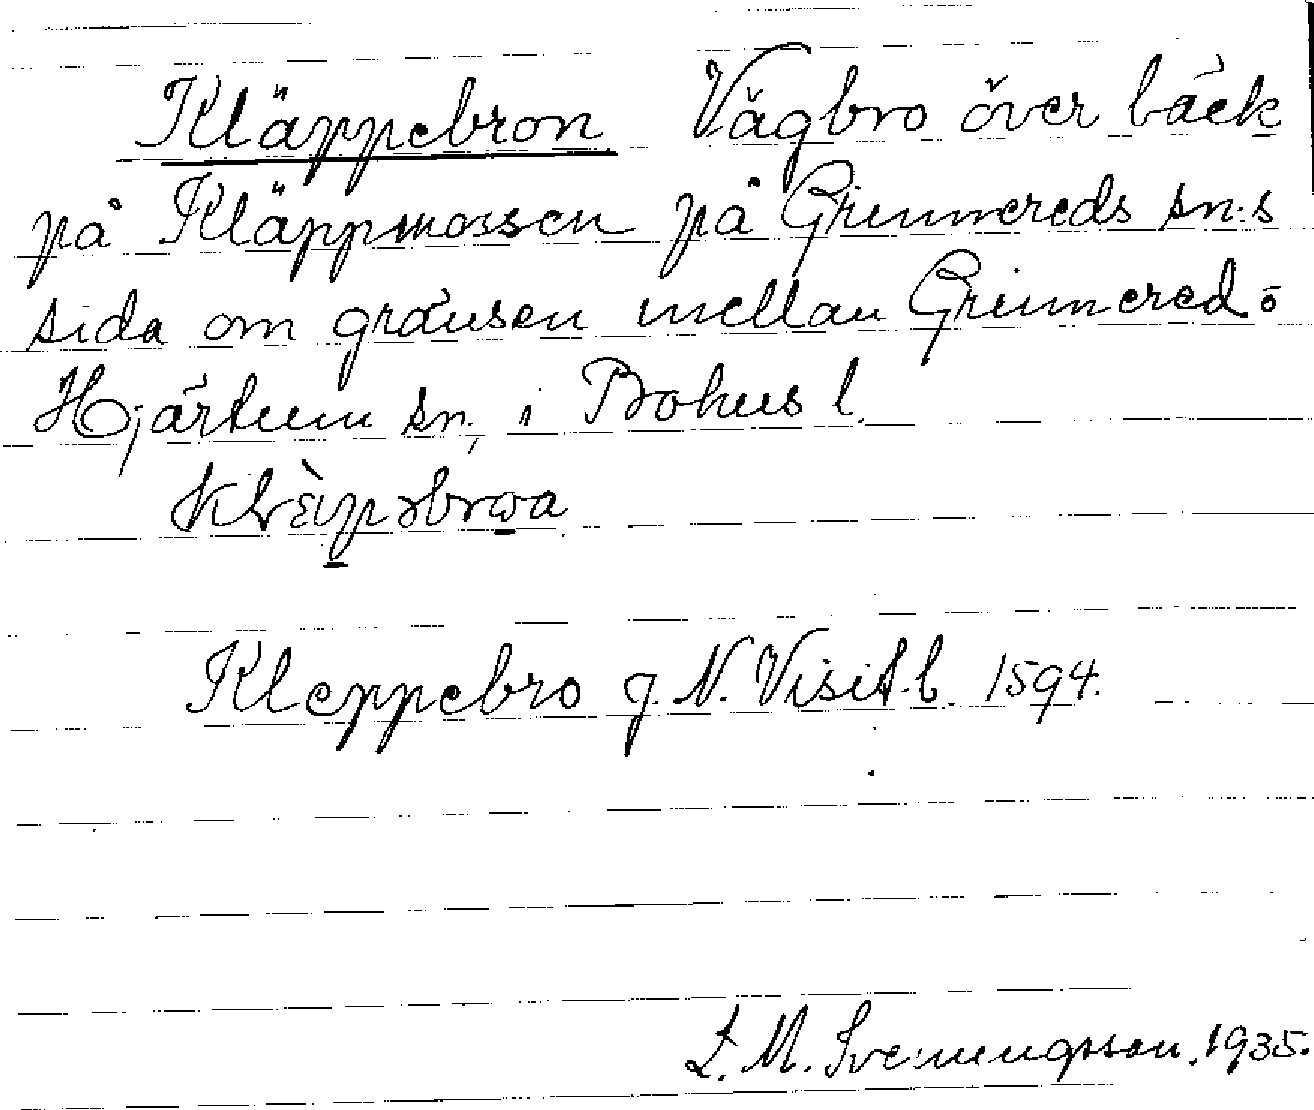 Kläppebron Vägbro över bäck
på Kläppmossen på Grinnereds sn:s
sida om gränsen mellan Grinnered o
Hjärtum sn, i Bohus l.
Kleppebro J. N. Visit.b. 1594.
L. M. Svenungsson. 1935.